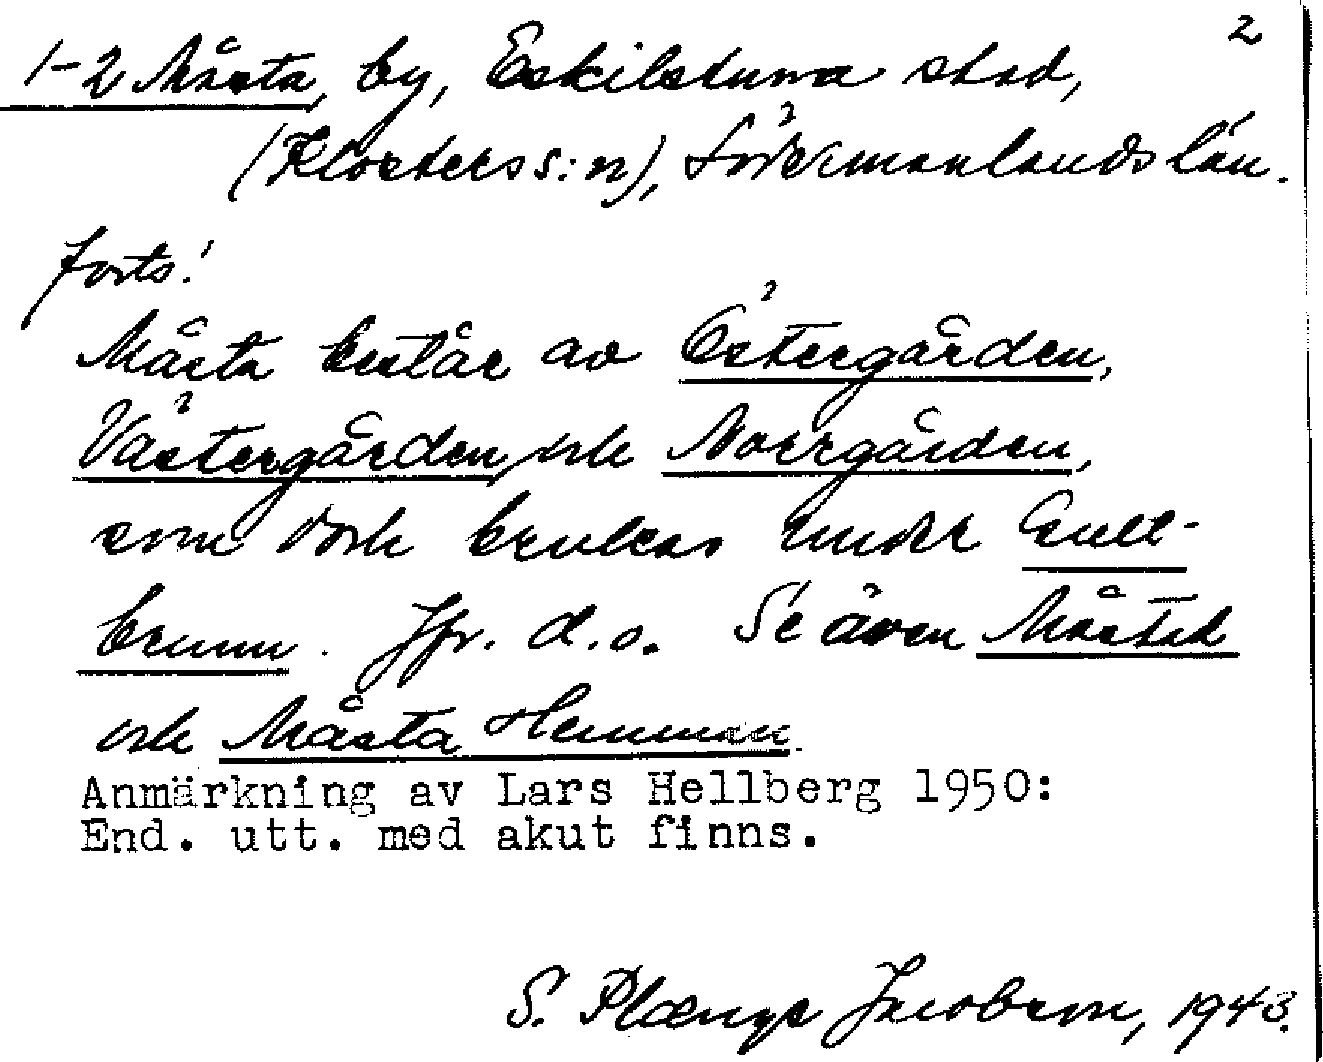 2
1-2 Måsta, by, Eskilstuna stad,
(Klosters s:n), Södermanlands län.
forts!
Måsta består av Östergården,
Västergården, och Norrgården,
som dock brukas under Gull-
brunn. Jfr. d.o. Se även Måsta
och Måsta Hemman
Anmärkning av Lars Hellberg 1950:
End. utt. med akut finns.
S. Plænge Jacobson, 1943.